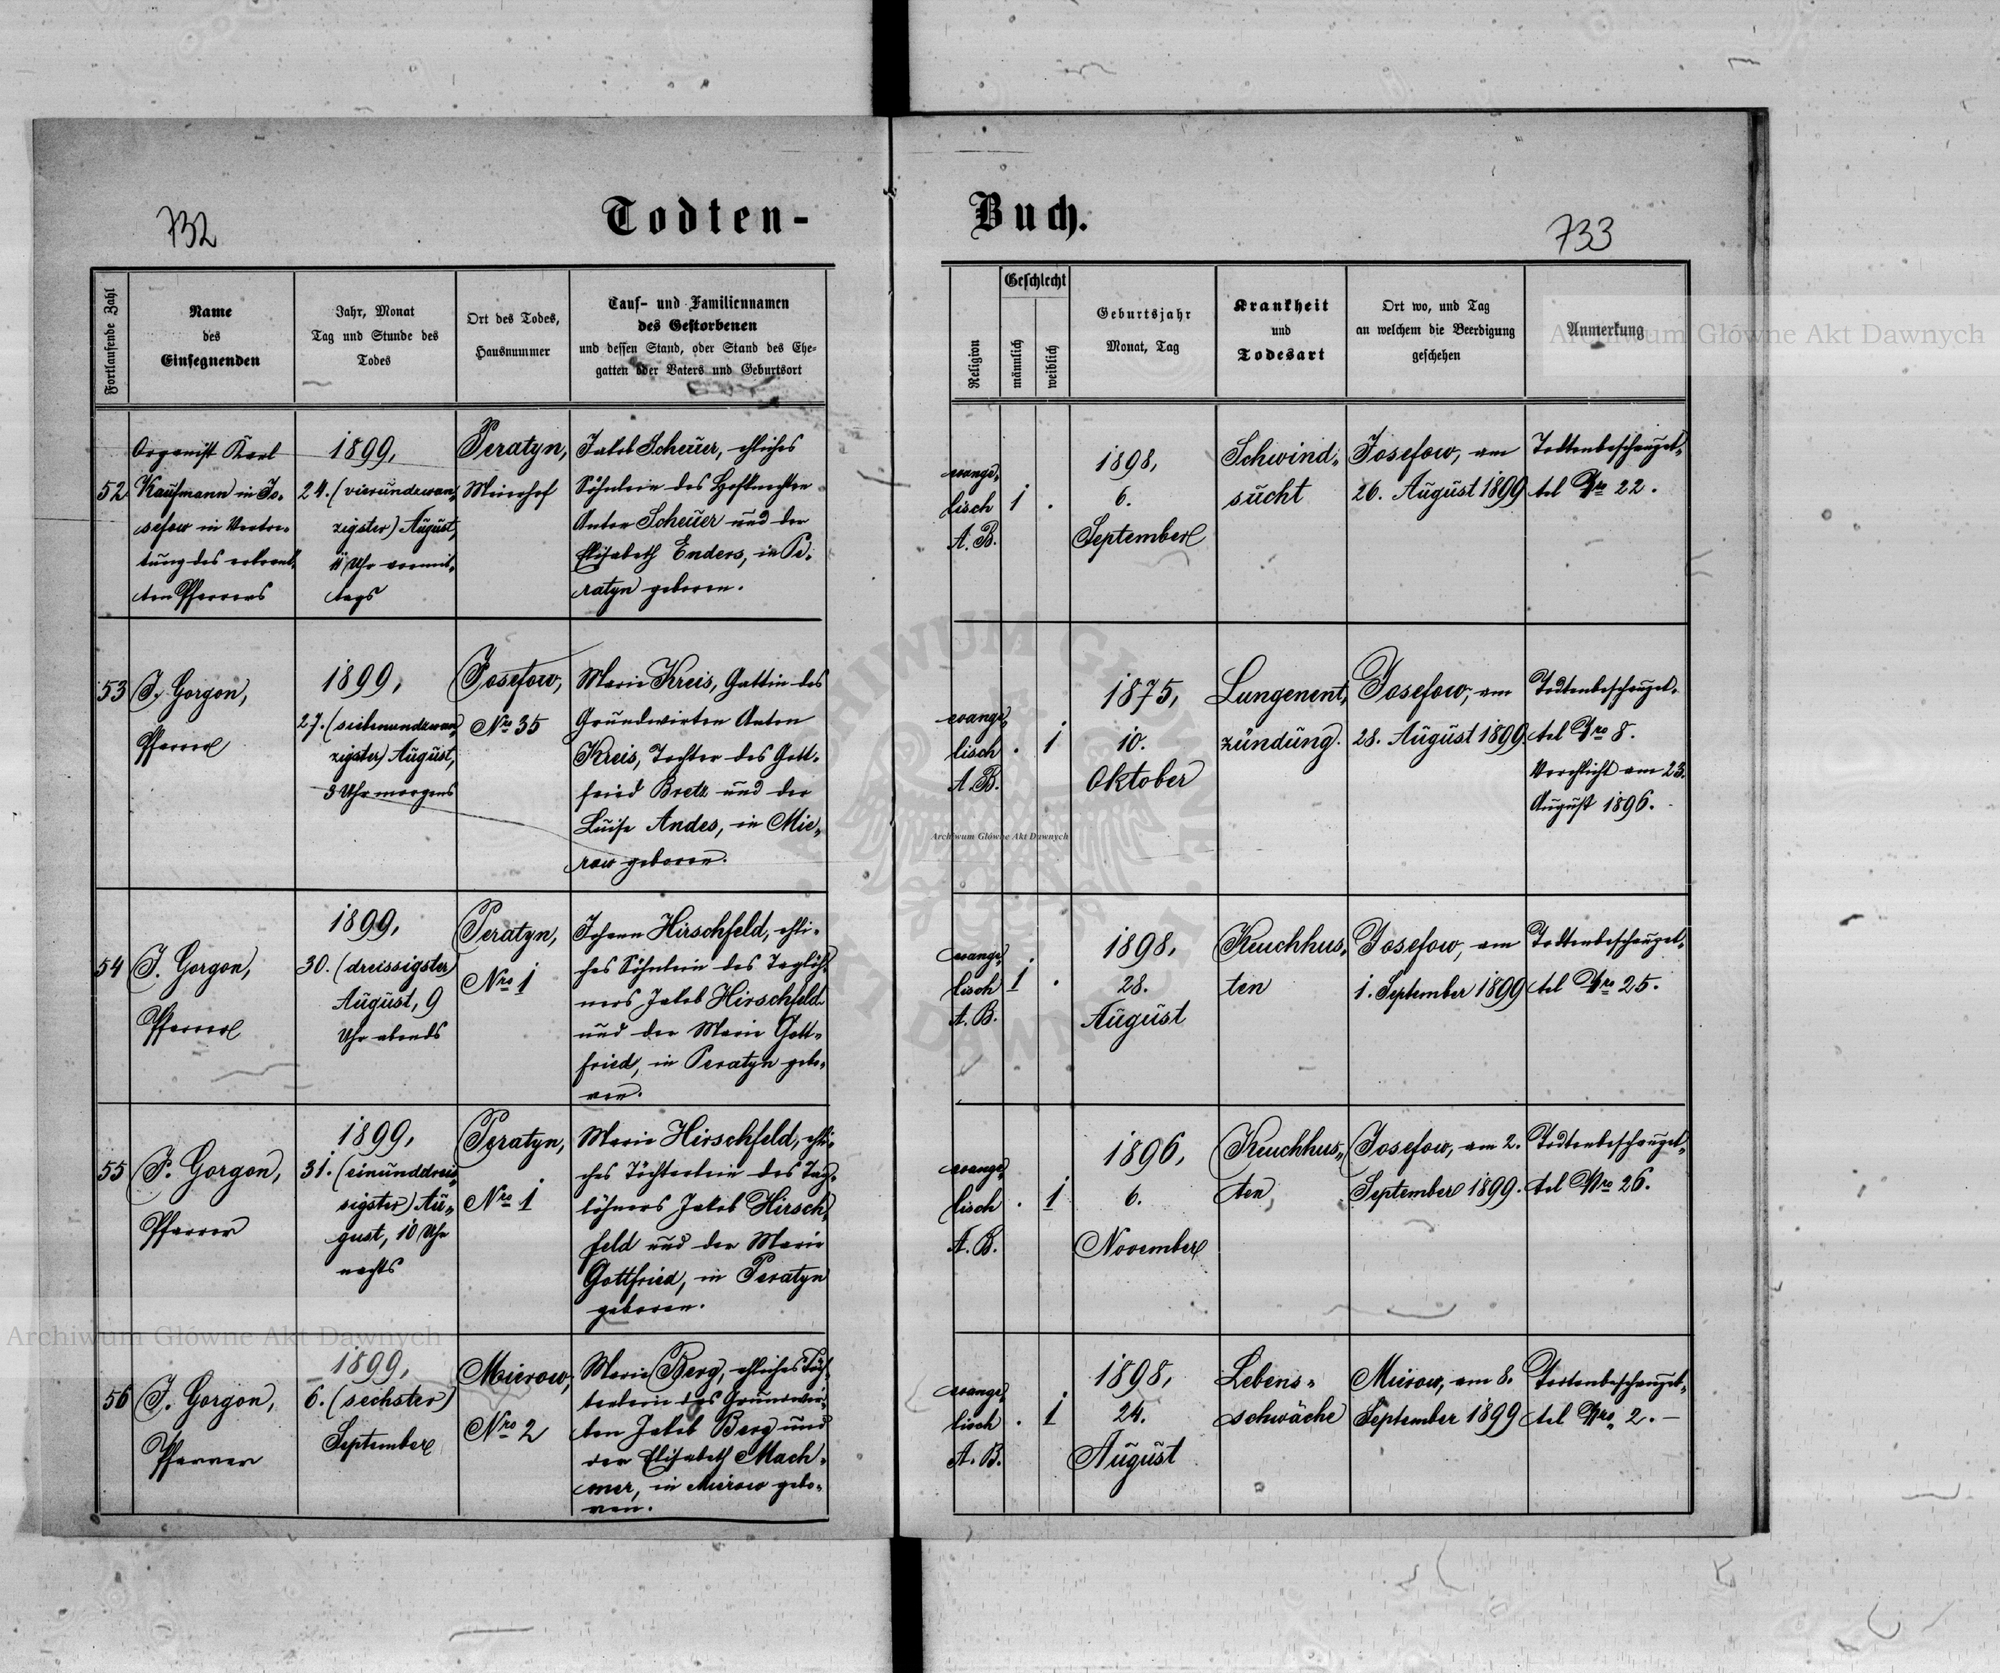 732
Todten-
Buch.
733
Fortlaufende Zahl
Name
des
Einsegnenden
Jahr, Monat
Tag und Stunde des
Todes
Ort des Todes,
Hausnummer
Tauf- und Familiennamen
des Gestorbenen
und dessen Stand, oder Stand des Ehe-
gatten oder Vaters und Geburtsort
Religion
Geschlecht
männlich
weiblich
Geburtsjahr
Monat, Tag
Krankheit
und
Todesart
Ort wo, und Tag
an welchem die Beerdigung
geschehen
Anmerkung
Archiwum Główne Akt Dawnych
52
Organist Karl
Kaufmann in Jo-
sefow in Vertre-
tung des erkrank-
ten Pfarrers
1899,
24. (vierundzwan-
zigster) August,
11 Uhr vormit-
tags
Peratyn,
Meierhof
Jakob Scheuer, ehliches
Söhnlein des Hofknechten
Anton Scheuer und der
Elisabeth Enders, in Pe-
ratyn geboren.
evange-
lisch
A. B.
1
.
1898,
6.
September
Schwind-
sucht
Josefow, am
26. August 1899
Todtenbeschauzet-
tel Nro 22.
53
J. Gorgon,
Pfarrer
1899,
27. (siebenundzwan-
zigster) August,
3 Uhr morgens
Josefow,
Nro 35
Marie Kreis, Gattin des
Grundwirten Anton
Kreis, Tochter des Gott-
fried Bretz und der
Luise Andes, in Mie-
row geboren.
evange-
lisch
A. B.
.
1
1875,
10.
Oktober
Lungenent-
zündung.
Josefow, am
28. August 1899.
Todtenbeschauzet-
tel Nro 8.
Verehlicht am 23.
August 1896.
54
J. Gorgon,
Pfarrer
1899,
30. (dreissigster)
August, 9
Uhr abends
Peratyn,
Nro 1
Johann Hirschfeld, ehli-
ches Söhnlein des Taglöh-
ners Jakob Hirschfeld
und der Marie Gott-
fried, in Peratyn gebo-
ren.
evange-
lisch
A. B.
1
.
1898,
28.
August
Keuchhus-
ten
Josefow, am
1. September 1899
Todtenbeschauzet-
tel Nro 25.
55
J. Gorgon,
Pfarrer
1899,
31. (einunddreis-
sigster) Au-
gust, 10 Uhr
nachts
Peratyn,
Nro 1
Marie Hirschfeld, ehli-
ches Töchterlein des Tag-
löhners Jakob Hirsch-
feld und der Marie
Gottfried, in Peratyn
geboren.
evange-
lisch
A. B.
.
1
1896,
6.
November
Keuchhus-
ten
Josefow, am 2.
September 1899.
Todtenbeschauzet-
tel Nro 26.
56
J. Gorgon,
Pfarrer
1899,
6. (sechster)
September
Mierow,
Nro 2
Marie Berg, ehliches Töch-
terlein des Grundwir-
ten Jakob Berg und
der Elisabeth Mach-
mer, in Mierow gebo-
ren.
evange-
lisch
A. B.
.
1
1898,
24.
August
Lebens-
schwäche
Mierow, am 8.
September 1899
Todtenbeschauzet-
tel Nro 2. —
Archiwum Główne Akt Dawnych
ARCHIWUM GŁÓWNE AKT DAWNYCH
Archiwum Główne Akt Dawnych